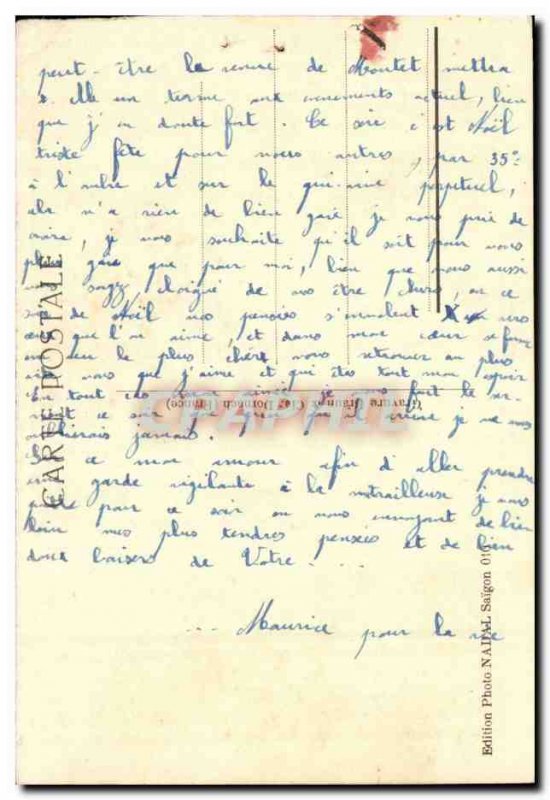 peut-être la venue de Moutet mettra
un terme aux evenements actuel, bien
que j'en doute fort. Ce soir c'est Noël
triste fête pour nous autres, par 35°
à l'ombre et sur le qui-vive perpetuel,
cela n'a rien de bien gaie je vous prie de
croire, je vous souhaite qu'il soit pour vous
plus gaie que pour moi, bien que vous aussi
vous soyez éloigné de vos être chers, en ce
soir de Noël nos pensées s'envolent vers
ceux que l'on aime, et dans mon cœur se forme
un vœu le plus chère vous retrouver au plus
vite vous que j'aime et qui êtes tout mon espoir
En tout cas mon aimée je vous fait le ser-
ment ce soir que je ne vous
oublierais jamais.
Sur ce mon amour afin d'aller prendre
une garde vigilante à la mitrailleuse je vous
quitte pour ce soir en vous envoyant de bien
loin mes plus tendres pensées et de bien
doux baisers de Votre ....
... Maurice pour la vie
CARTE POSTALE
Gravure Braun & Cie, Dornach (France)
CPAPHIL
Edition Photo NADAL Saïgon